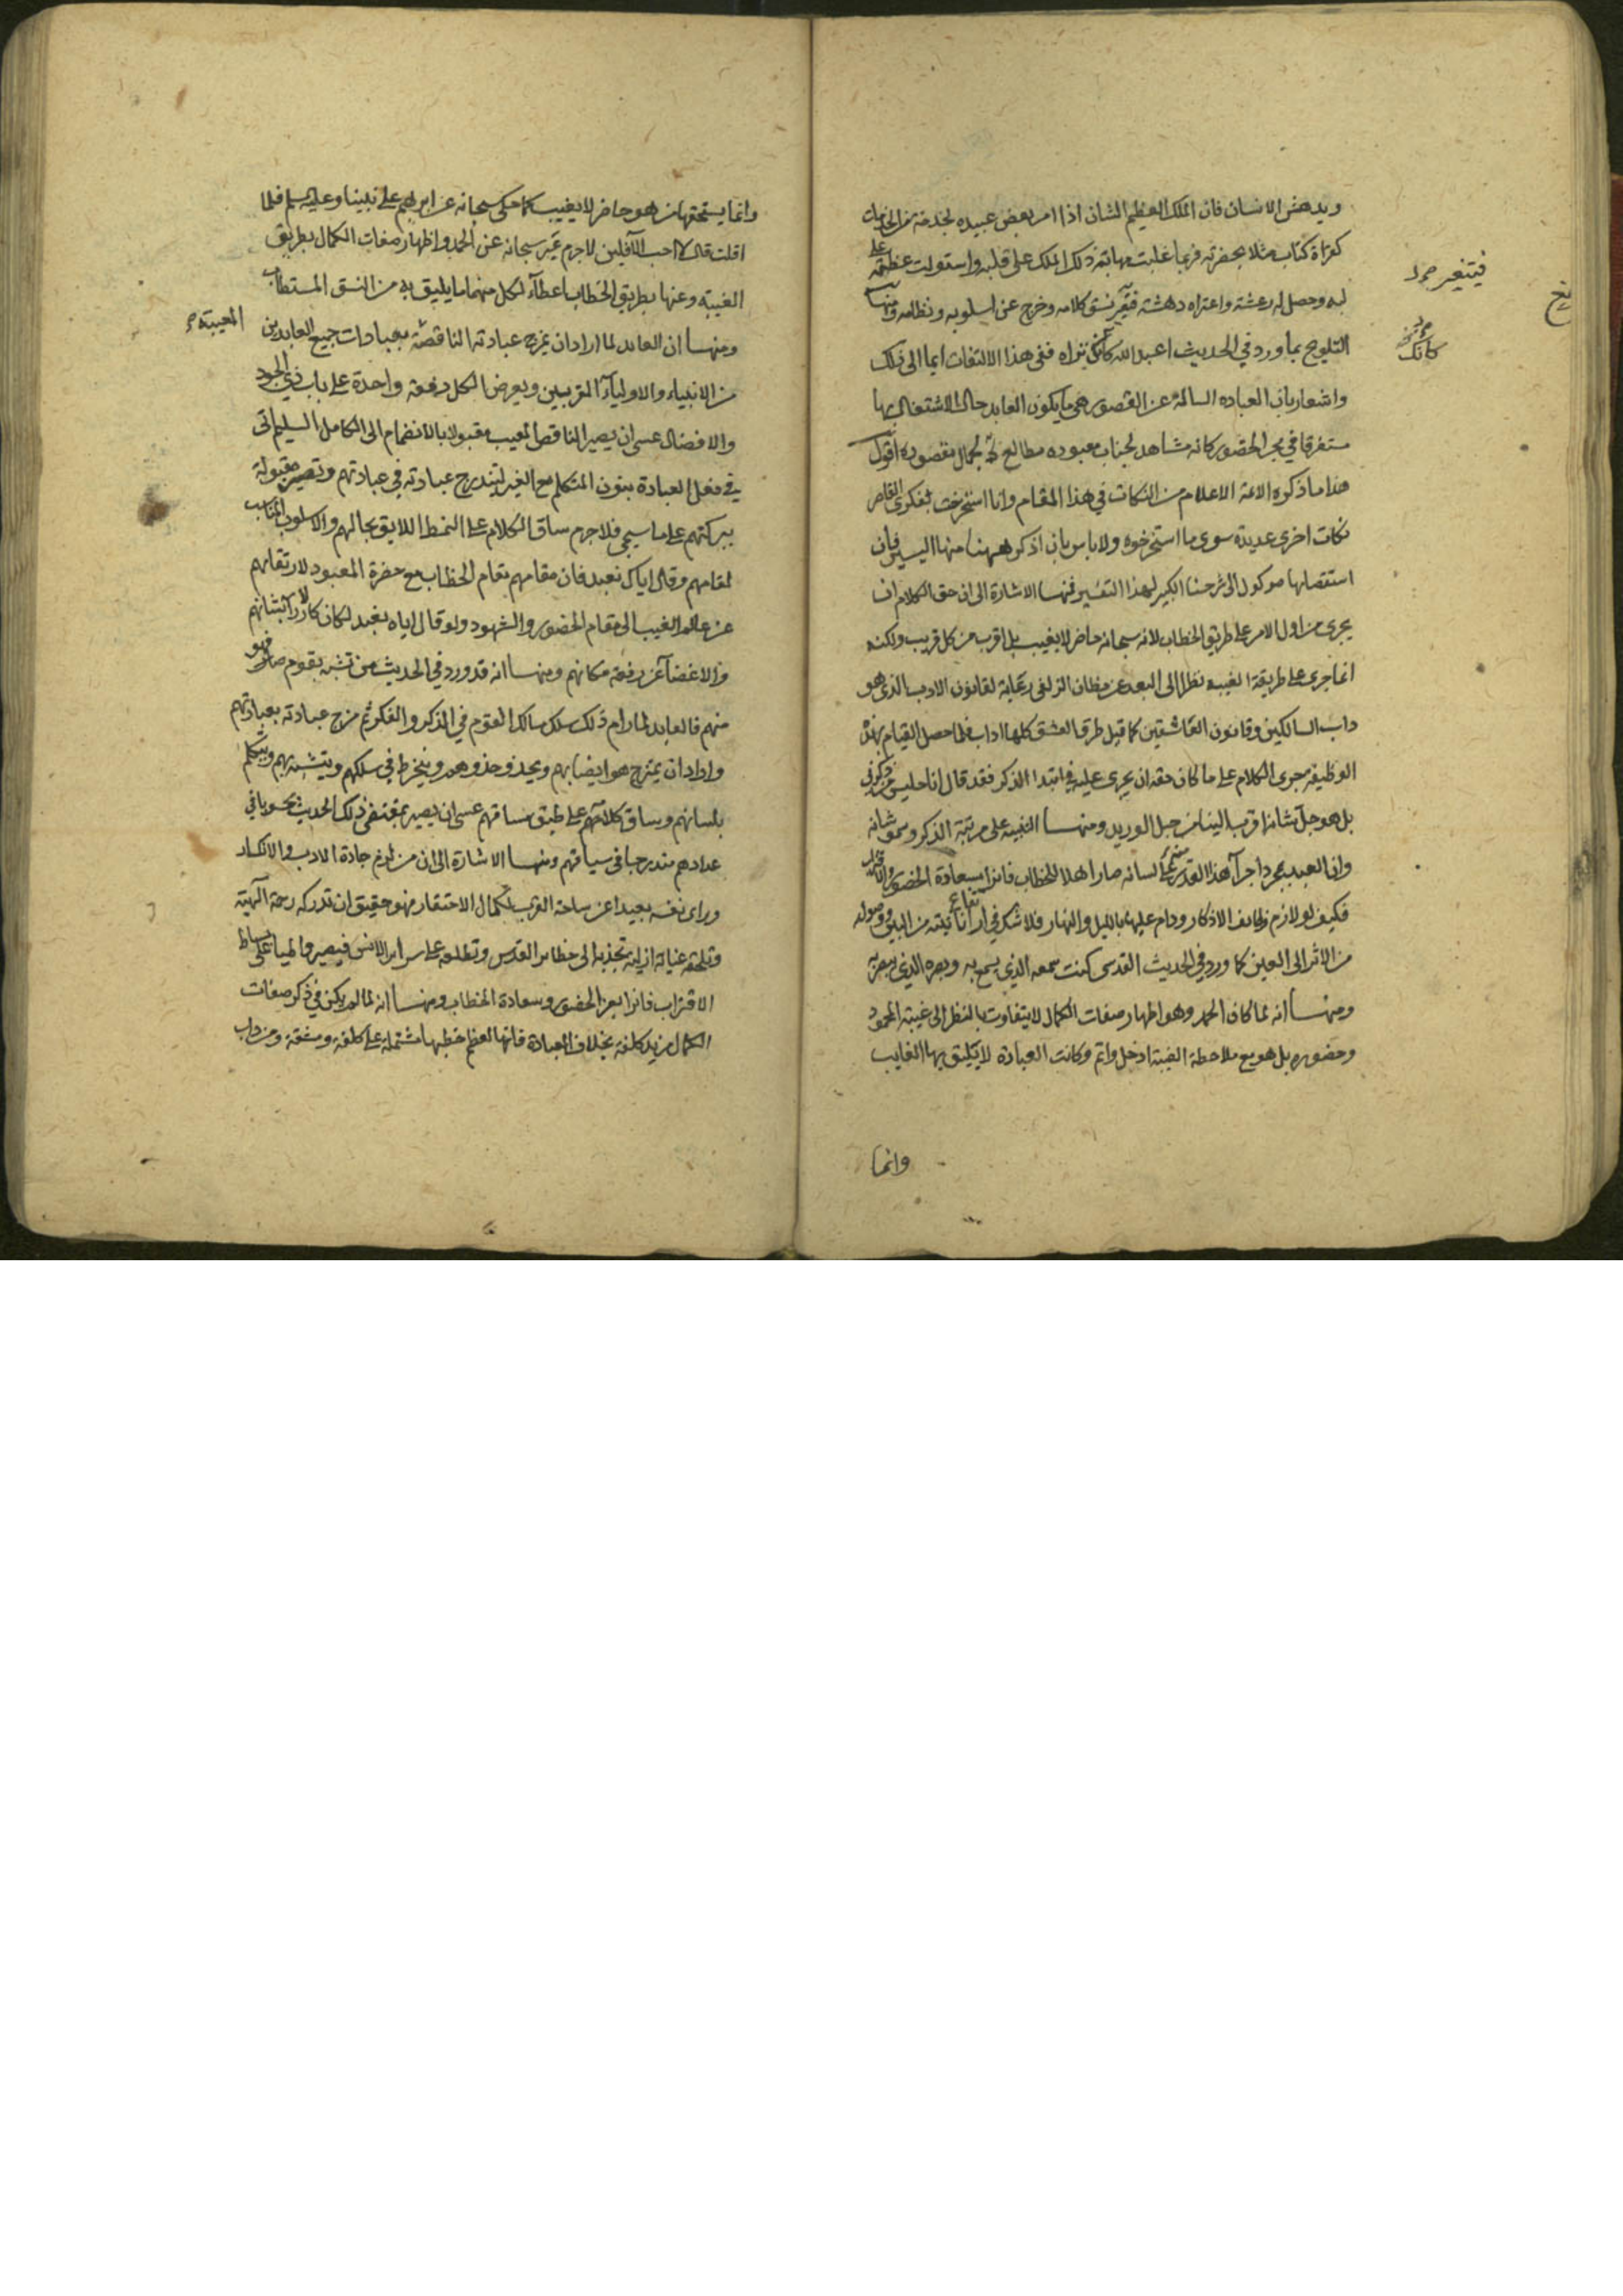 ويدهش الانسان فان الملك العظيم الشان اذا امر بعض عبيده لخدمة من الخدمات
كقراءة كتاب مثلا بحضرته فربما غلبت مهابة ذلك الملك على قلبه واستولت عظمته على
لبه وحصل له رعشة واعتراه دهشة فيتغير نسق كلامه وخرج عن اسلوبه ونظامه ومنها
فيتغير
التلويح بما ورد في الحديث اعبد الله كأنك تراه ففي هذا الالتفات ايما الى ذلك
كأنك
واشعار بان العباده السالمة عن القصور هي ما يكون العابد حال الاشتغال بها
مستغرقا في بحر الحضور كانه مشاهد لجناب معبوده مطالع لجمال مقصوده اقول
هذا ما ذكره الائمة الاعلام من النكات في هذا المقام وانا استخرجت بفكري القاصر
نكات اخرى عديدة سوى ما استخرجوه ولا باس بان اذكر ههنا منها اليسير فان
استقصاءها موكول الى شرحنا الكبير لهذا التفسير فمنها الاشارة الى ان حق الكلام ان
يجري من اول الامر على طريق الخطاب لانه سبحانه حاضر لا يغيب بل اقرب من كل قريب ولكنه
انما جرى على طريقة الغيبة نظرا الى البعد عن مظان الزلفى رعاية لقانون الادب الذي هو
داب السالكين وقانون العاشقين كما قيل طرق العشق كلها اداب فلما حصل القيام بهذه
الوظيفة جرى الكلام على ما كان حقه ان يجري عليه في ابتداء الذكر فقد قال انا جليس من ذكرني
بل هو جل شانه اقرب الينا من حبل الوريد ومنها التنبيه على مرتبة الذكر وسمو شانه
وان العبد بمجرد اجراء هذا القدر على لسانه صار اهلا للخطاب فائزا بسعادة الحضور والاقتراب
فكيف لو لازم وظائف الاذكار ودام عليها بالليل والنهار فلا شك في ارتفاع انانيته من البين ووصوله
من الاثر الى العين كما ورد في الحديث القدسي كنت سمعه الذي يسمع به وبصره الذي يبصر به
ومنها انه لما كان الحمد وهو اظهار صفات الكمال لا يتفاوت بالنظر الى غيبة المحمود
وحضوره بل هو مع ملاحظة الغيبة ادخل واتم وكانت العبادة لا يليق بها الغايب
وانما
وانما يستحقها من هو حاضر لا يغيب كما حكى سبحانه عن ابراهيم على نبينا وعليه السلم فلما
افلت قال لا احب الآفلين لاجرم عبر سبحانه عن الحمد واظهار صفات الكمال بطريق
الغيبة وعنها بطريق الخطاب اعطآء لكل منهما ما يليق به من النسق المستطاب
ومنها ان العابد لما اراد ان يمزج عبادته الناقصة بعبادات جميع العابدين
المعيبة
من الانبياء والاولياء المقربين ويعرض الكل دفعة واحدة على باب ذي الجود
والافضال عسى ان يصير الناقص المعيب مقبولا بالانضمام الى الكامل السليم اتى
في فعل العبادة بنون المتكلم مع الغير ليندرج عبادته في عبادتهم وتصير مقبولة
ببركتهم على ما سيجي فلاجرم ساق الكلام على النمط اللايق بحالهم والاسلوب المناسب
لمقامهم وقال اياك نعبد فان مقامهم مقام الخطاب مع حضرة المعبود لارتقائهم
عن عالم الغيب الى مقام الحضور والشهود ولو قال اياه نعبد لكان كالازراء بشانهم
والاغضاء عن رفعة مكانهم ومنها انه قد ورد في الحديث من تشبه بقوم فهو
منهم فالعابد لما رام ذلك سلك مسالك القوم في الذكر والفكر ثم مزج عبادته بعبادتهم
واراد ان يمتزج هو ايضا بهم ويحذو حذوهم وينخرط في سلكهم ويتشبه بهم ويتكلم
بلسانهم ويساق كلامهم على طبق مساقهم عسى ان يصير بمقتضى ذلك الحديث محسوبا في
عدادهم مندرجا في سياقهم ومنها الاشارة الى ان من لزم جادة الادب والانكسار
وراى نفسه بعيدا عن ساحة القرب لكمال الاحتقار فهو حقيق ان تدركه رحمة الهية
وتلحقه عناية ازلية تجذبه الى حظاير القدس وتطلعه على سراير الانس فيصير واطيا على بساط
الاقتراب فائزا بعز الحضور وسعادة الخطاب ومنها انه لما لم يكن في ذكر صفات
الكمال مزيد كلفة بخلاف العبادة فانها لعظم خطبها مشتملة على كلفة ومشقة ومن داب